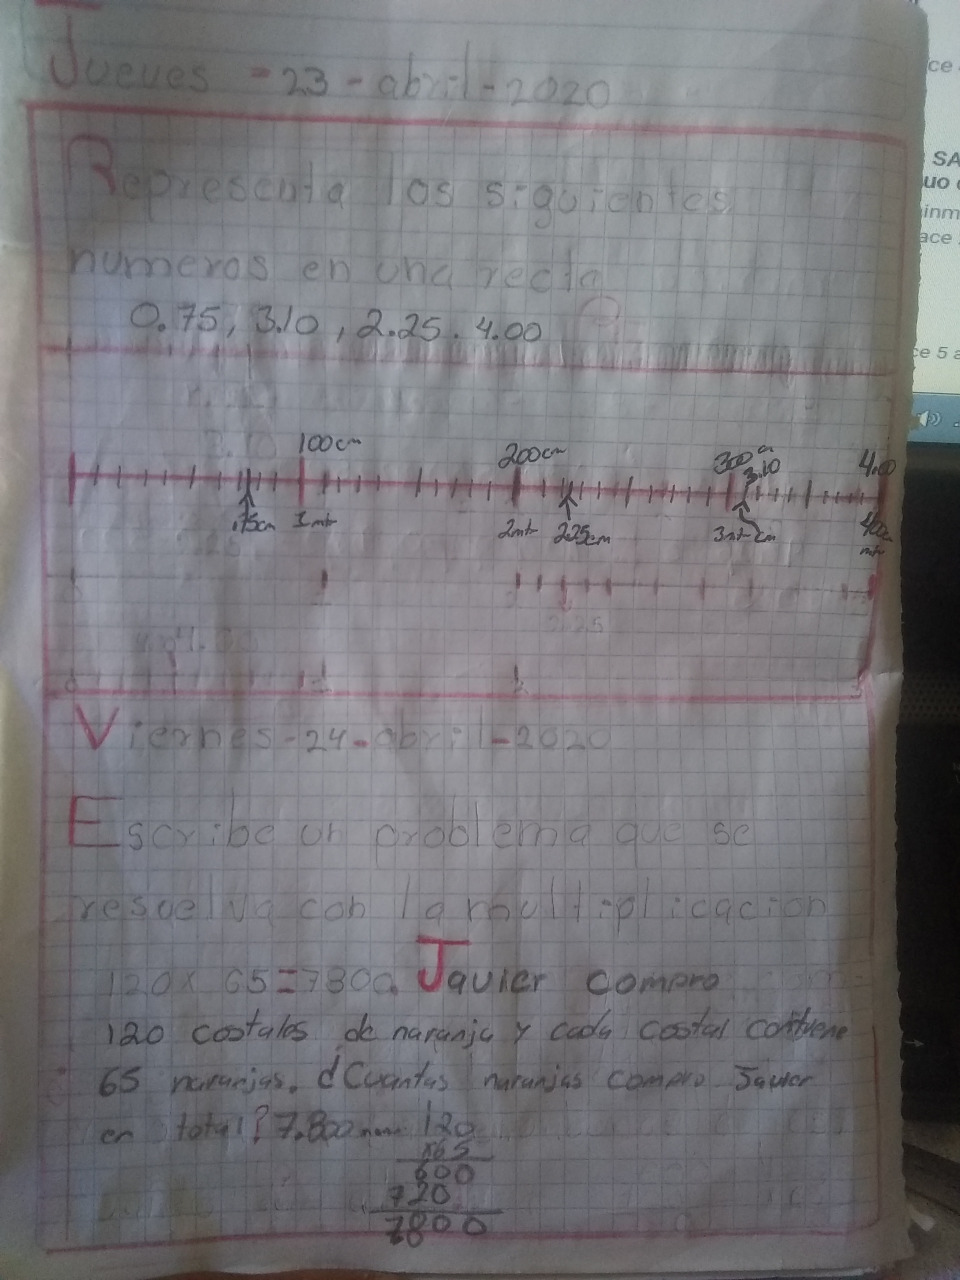 Jueves - 23 - abril - 2020
Representa los siguientes
numeros en una recta
0.75, 3.10, 2.25. 4.00
100cm 200cm 300cm 3.10 4.00
.75cm 1mt 2mt 2.25cm 3mt cm 400
mt
2.25
Viernes - 24 - abril - 2020
Escribe un problema que se
resuelva con la multiplicacion
120 x 65 = 7800. Javier compro
120 costales de naranja y cada costal contiene
65 naranjas. ¿Cuantas naranjas compro Javier
en total? 7.800 120
x65
600
720
7800
ce
SA
uo
inm
ace
ce 5 a